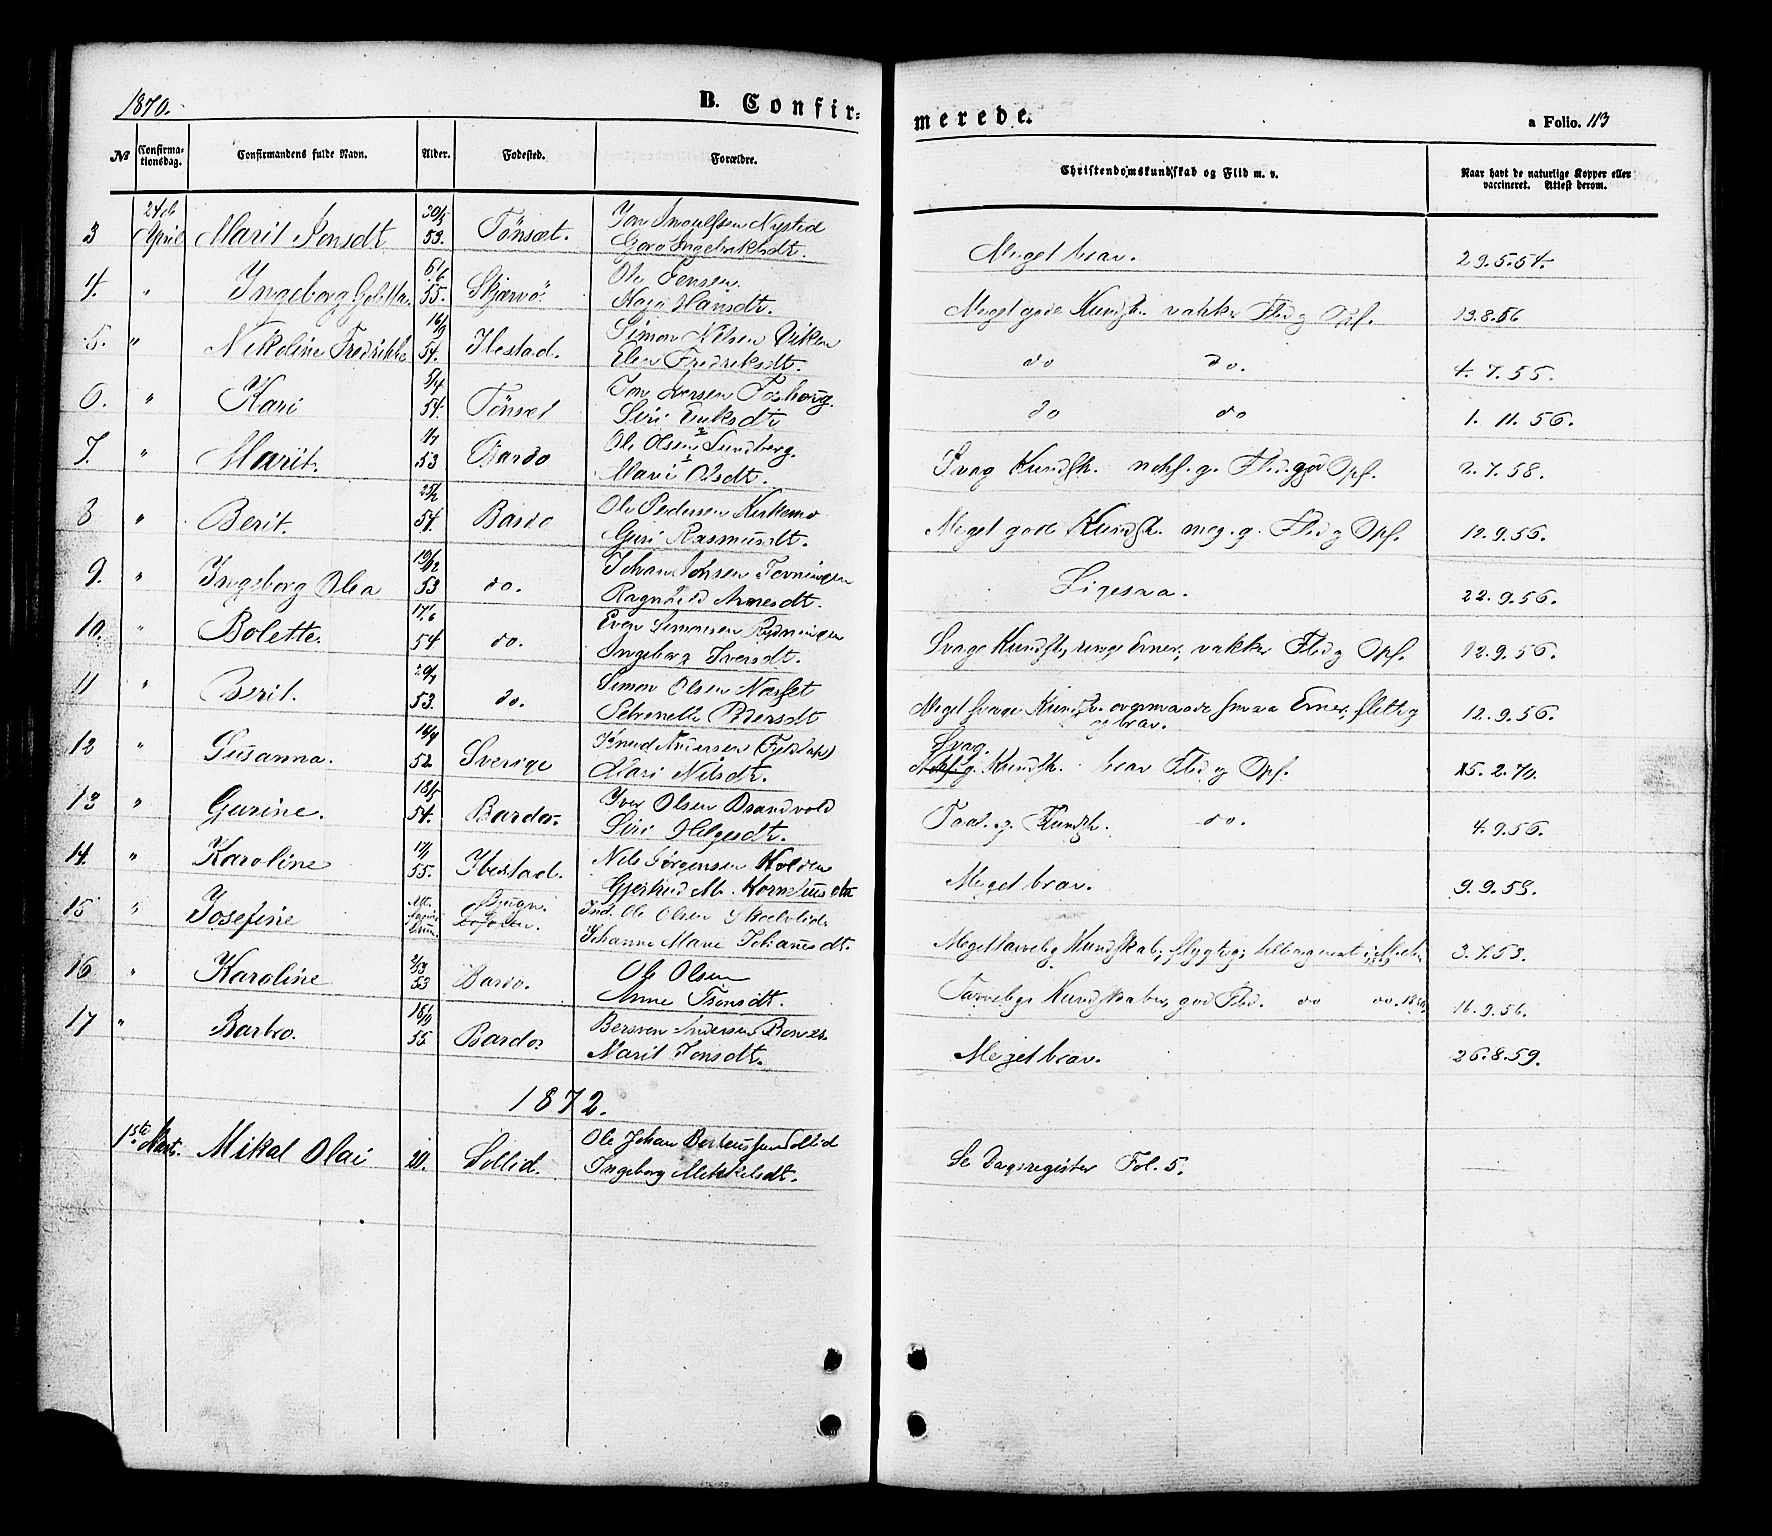 1870.
B. Confir-
merede.
a Folio. 113
No
Confirma-
tionsdag.
Confirmandens fulde Navn.
Alder.
Fødested.
Forældre.
Christendomskundskab og Flid m. v.
Naar havt de naturlige Kopper eller
vaccineret. Attest derom.
3 24de April Marit Jonsdt 30/5 53. Tönsæt. Jon Ingulfsen Nysted
Goro Ingebrigtsdt. Meget brav. 29.5.54.
4. " Ingeborg 6/6 55. Skjærvö. Ole Jensen
Maja Hansdt. Meget gode Kundsk. vakker Flid og Opf. 13.8.56
5. " Nikoline Fredrikke 16/9 54. Ibestad. Simon Nilsen Viken
Elen Fredriksdt. do do. 4.7.55.
6. " Kari 5/4 54. Tönset Jon Larsen Foshaug.
Siri Eriksdt do do 1. 11. 56.
7. " Marit. 53 Bardo Ole Olsen Lundberg.
Mari Olsdt. Svag Kundsk. noks. g. Flid. god Opf. 2.7.58.
8 " Berit. 25/2 54. Bardo Ole Pedersen Kirkemo
Guri Rasmusdt. Meget gode Kundsk. meg. g. Flid og Opf. 12.9.56.
9. " Ingeborg Olea 19/12 53 do. Johan Johsen
Ragnhild Arnesdt. Ligesaa. 22.9.56.
10. " Bolette. 17/6 54 do. Even Simonsen Rydningen
Ingeborg Iversdt. Svage Kundsk, ringe Evner, vakker Flid og Opf. 12.9.56.
11 " Berit. 53. do. Simon Olsen Næsset
Petronelle Pedersdt Meget svage Kundsk. overmaade smaa Evner, flittig
og brav. 12.9.56.
12 " Susanna. 52. Sverige Knud Andersen
Mari Nilsdt. Svag.
Noks. g. Kundsk. brav Flid og Opf. 15.2.70.
13 " Gurine. 18/5 54. Bardo. Iver Olsen Brandvold
Siri Helgesdt. Taal. g. Kundsk. do. 4.9.56.
14. " Karoline 55. Ibestad. Nils Jørgensen Holden
Gjertrud M. Korneliusdtr Meget brav. 9.9.58.
15 " Josefine Lofoten. Ind. Ole Olsen
Johanna Marie Johannesdt. Meget tarvelig Kundskab, flygtig, 3.7.53.
16 " Karoline 53 Bardo. Ole Olsen
Anne Tjönsdt. Tarvelige Kundskaber, god Flid. do do. 16.9.56.
17 " Barbro. 18/9 55 Bardo. Bersven Andersen
Marit Jonsdt. Meget brav. 26.8.59.
1872.
1ste Marts. Mikal Olai 20. Sollid. Ole Johan Berteussen Sollid
Ingeborg Mikkelsdt. Se Dagsregister Fol. 5.